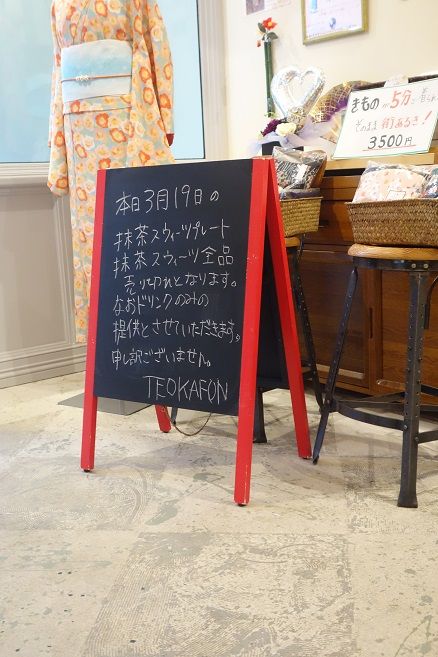 本日3月19日の
抹茶スウィーツプレート
抹茶スウィーツ全品
売り切れとなります。
なおドリンクのみの
提供とさせていただきます。
申し訳ございません。
TEOKAFON
きもの が5分で着られ
そのまま 街あるき!
3500円